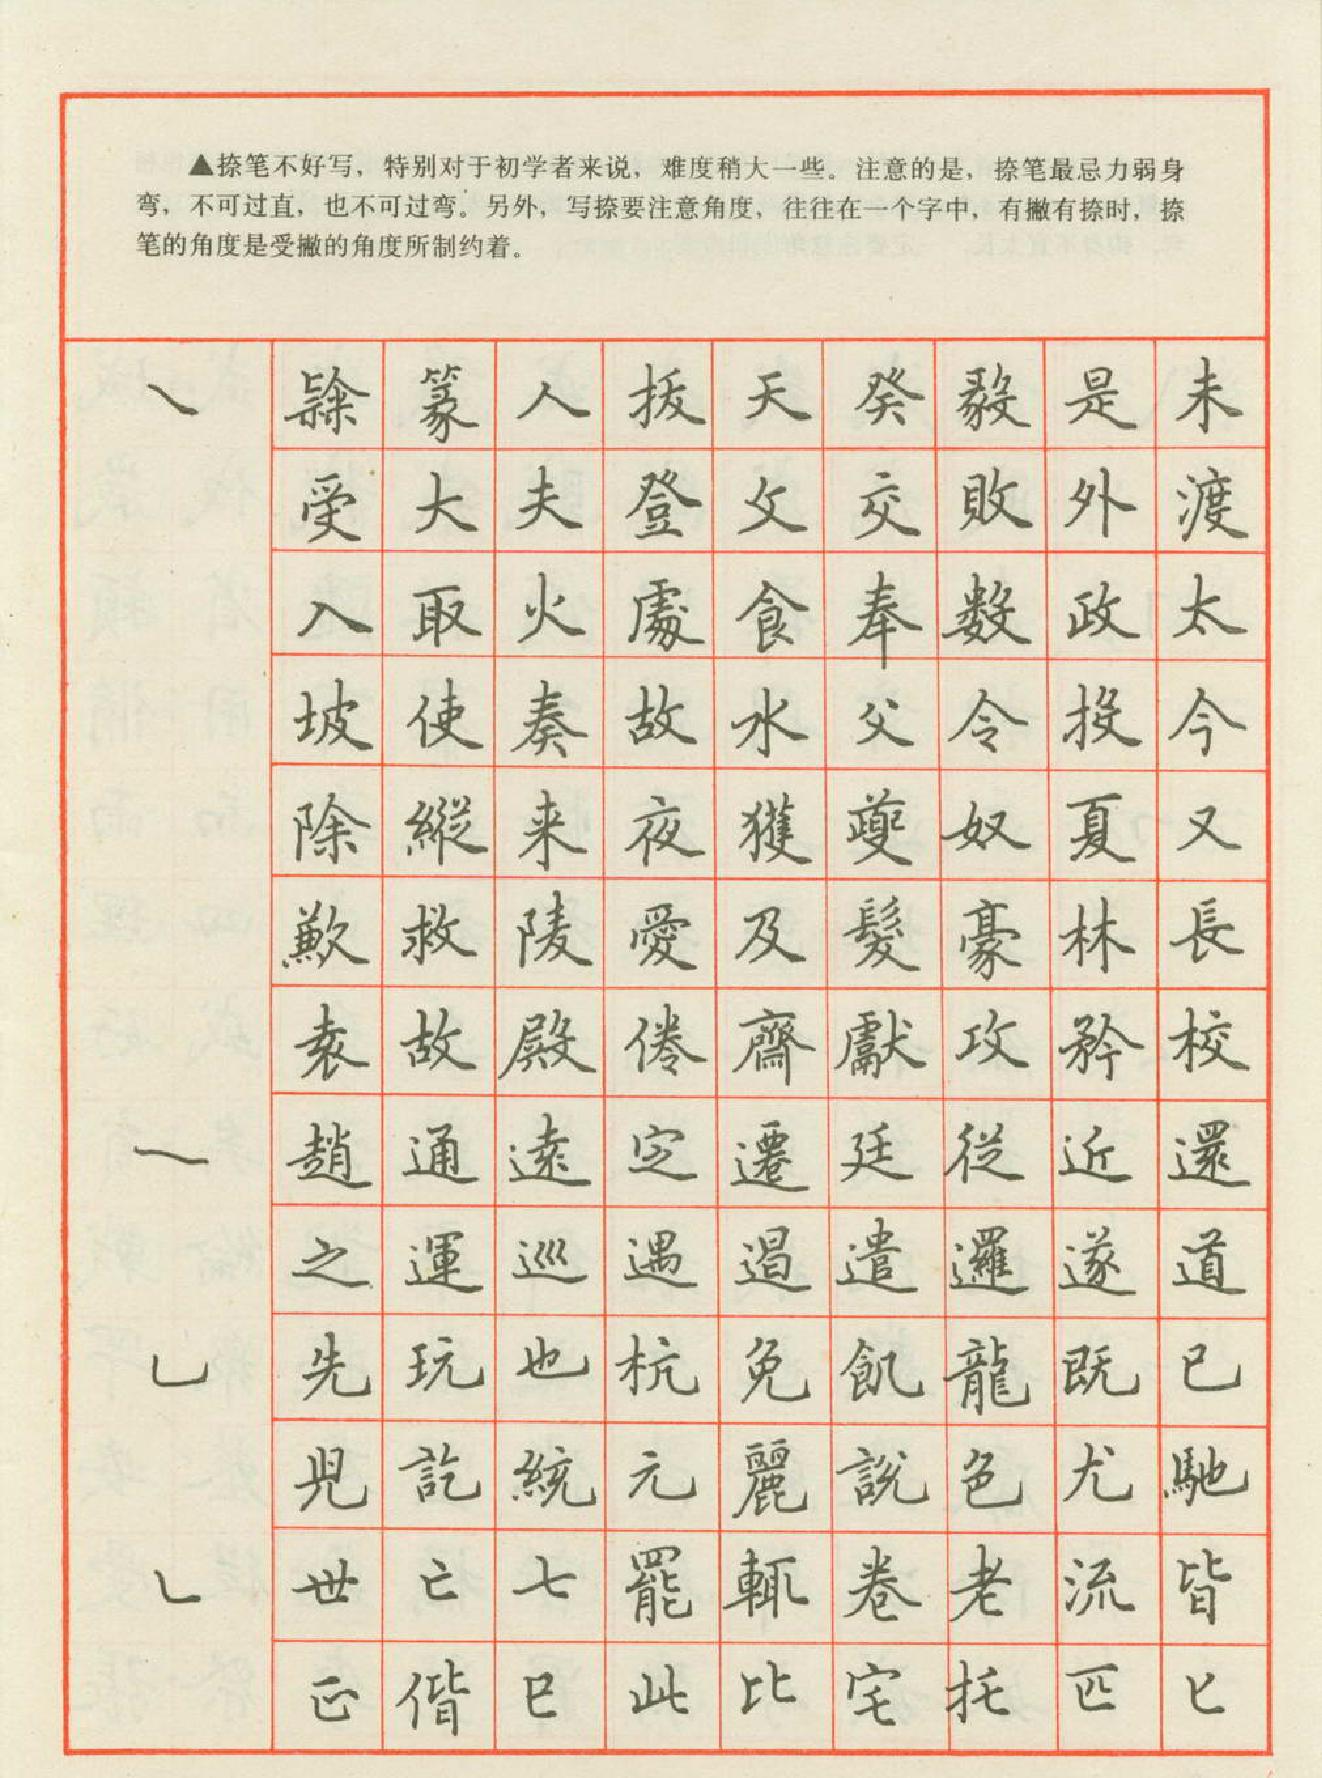 ▲捺笔不好写，特别对于初学者来说，难度稍大一些。注意的是，捺笔最忌力弱身
弯，不可过直，也不可过弯。另外，写捺要注意角度，往往在一个字中，有撇有捺时，捺
笔的角度是受撇的角度所制约着。
篆 人 拔 天 癸 毅 是 未
受 大 夫 登 文 交 敗 外 渡
入 取 火 處 食 奉 数 政 太
坡 使 奏 故 水 父 令 投 今
除 縱 来 夜 獲 夔 奴 夏 又
歉 救 陵 愛 及 髮 豪 林 長
袁 故 殿 倦 齋 獻 攻 矜 校
趙 通 遠 定 遷 廷 從 近 還
之 運 巡 遇 遣 邏 遂 道
先 玩 也 杭 免 飢 龍 既 已
兒 訖 統 元 麗 説 色 尤 馳
世 亡 七 罷 輒 卷 老 流 皆
正 偕 巳 此 比 宅 托 匹 匕